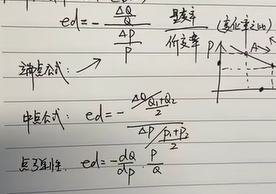 ed = - (ΔQ/Q) / (ΔP/P) 量变率/价变率 (变化率之比)
P A
弹点公式:
中点公式: ed = - (ΔQ / (Q₁+Q₂)/2) / (ΔP / (P₁+P₂)/2)
点弹性: ed = - dQ/dP · P/Q